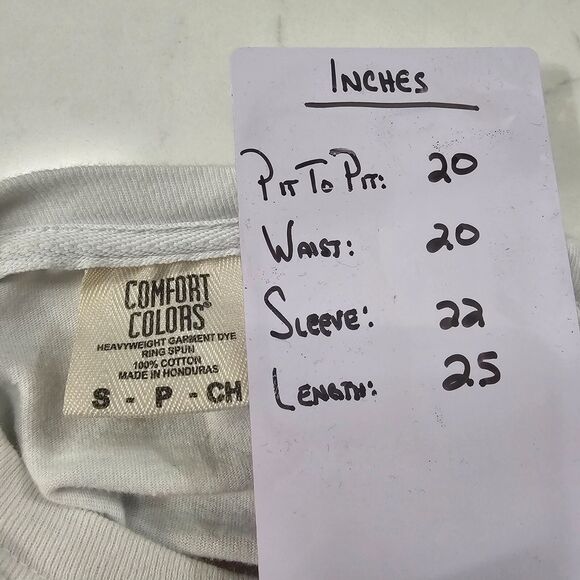 INCHES
PIT TO PIT: 20
WAIST: 20
SLEEVE: 22
LENGTH: 25
COMFORT
COLORS®
HEAVYWEIGHT GARMENT DYE
RING SPUN
100% COTTON
MADE IN HONDURAS
S - P - CH